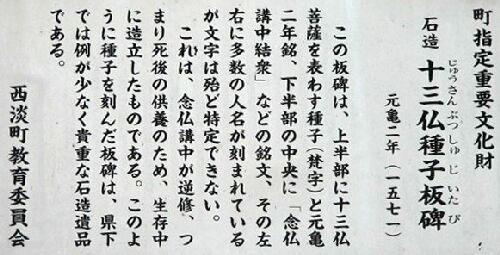 町指定重要文化財
石造 十三仏種子板碑
じゅうさんぶつしゅじいたび
元亀二年(一五七一)
この板碑は、上半部に十三仏
菩薩を表わす種子(梵字)と元亀
二年銘、下半部の中央に「念仏
講中結衆」などの銘文、その左
右に多数の人名が刻まれている
が文字は殆ど特定できない。
これは、念仏講中が逆修、つ
まり死後の供養のため、生存中
に造立したものである。このよ
うに種子を刻んだ板碑は、県下
では例が少なく貴重な石造遺品
である。
西淡町教育委員会